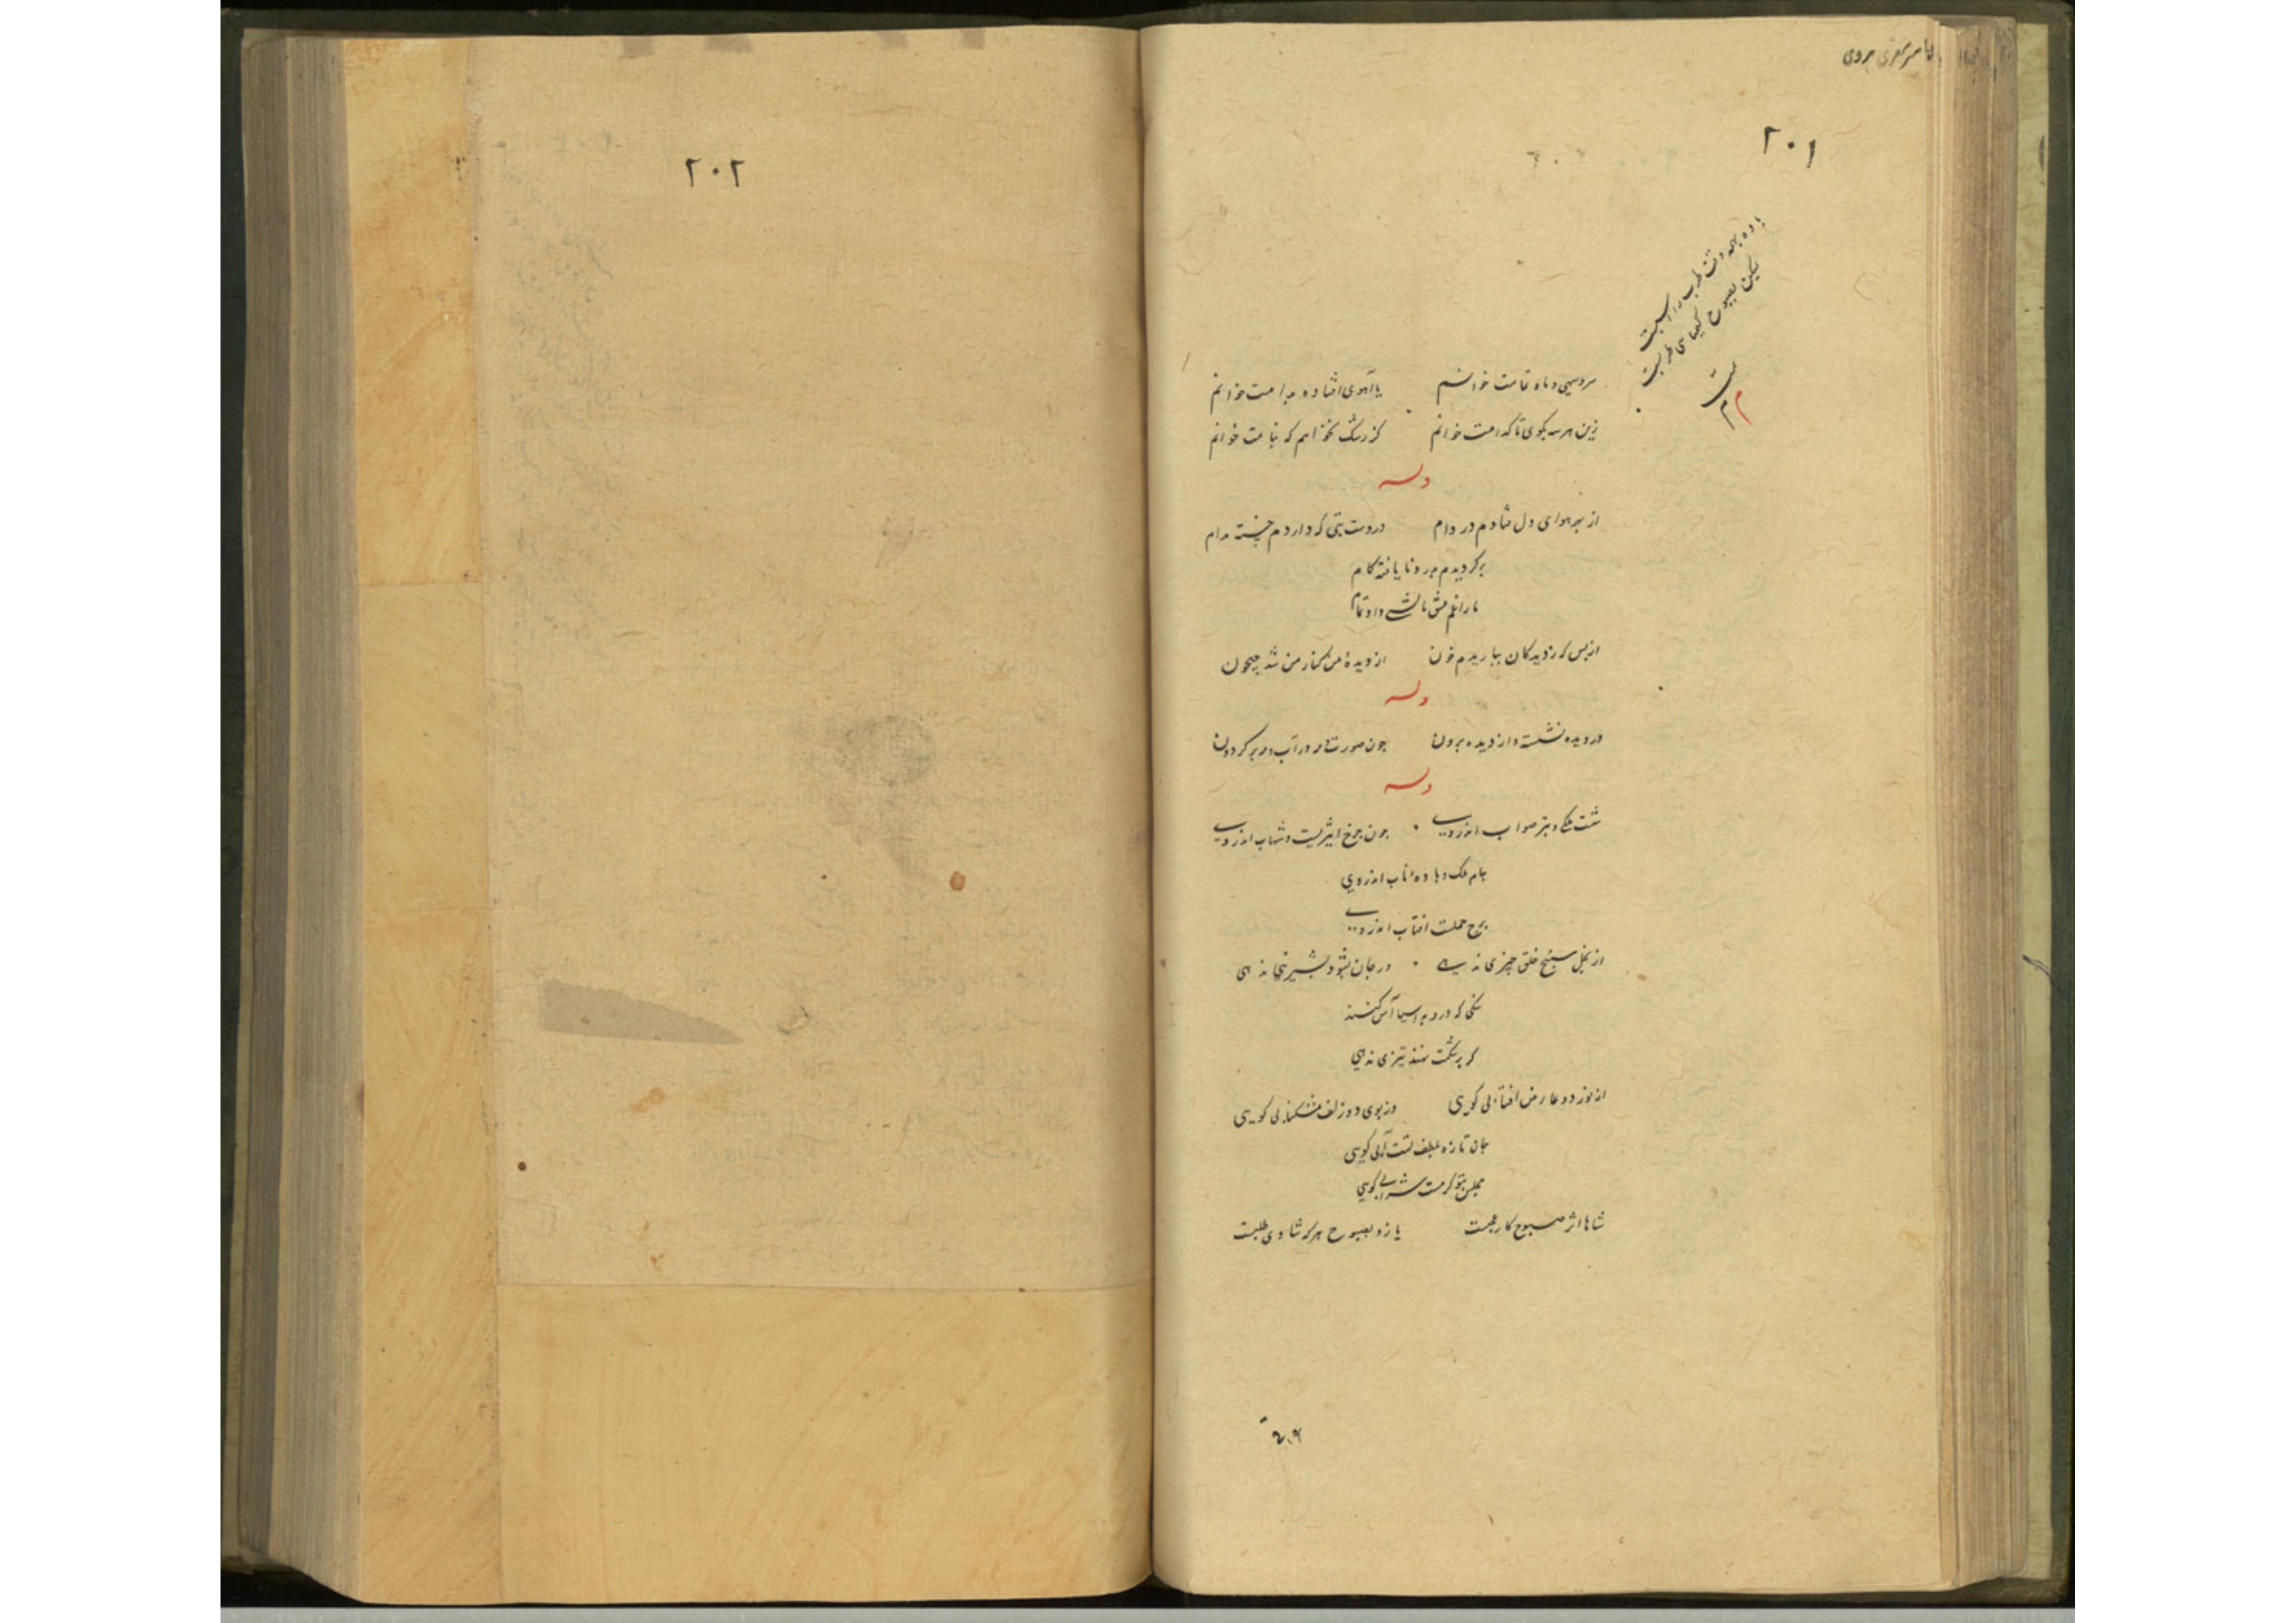 ۲۰۱
سروسهی و ماه تمامت خوانم یا آهوی افتاده بدامت خوانم
زین هر سه بکوی تا کدامت خوانم کز رشک نخواهم که بنامت خوانم
وله
از بهر هوای دل فتادم در دام در دست بتی که دارد م خسته مدام
برکردیدم برو نایافته کام
ما را غم عشق مالشی داد تمام
از بس که زدیدکان بباریدم خون از دیدهٔ من کنار من شد جیحون
وله
در دیده نشسته و از دیده برون چون صورت مه در آب و مه بر کردون
وله
چون چرخ اثیریست و شهاب اندر وی
جام ملک و باده ناب اندر وی
برج حملست افتاب اندر وی
از بخل بسنج خلق چیزی ندهی ور جان بشود بشیر نی ندهی
سنکی که درو به اسیا آس کنند
کر بر شکمت نهند تیزی ندهی
از نور دو عارض افتابی کویی وز بوی دو زلف مشکنابی کویی
جان تازه بلطف تست آبی کویی
مجلس بتو کرمست شرابی کویی
شاها اثر صبوح کار عجبست یا زد بصبوح هر که شادی طلبست
باده بهمه وقت طرب را سببست
لیکن بصبوح کیمیای طربست
۲۰۲